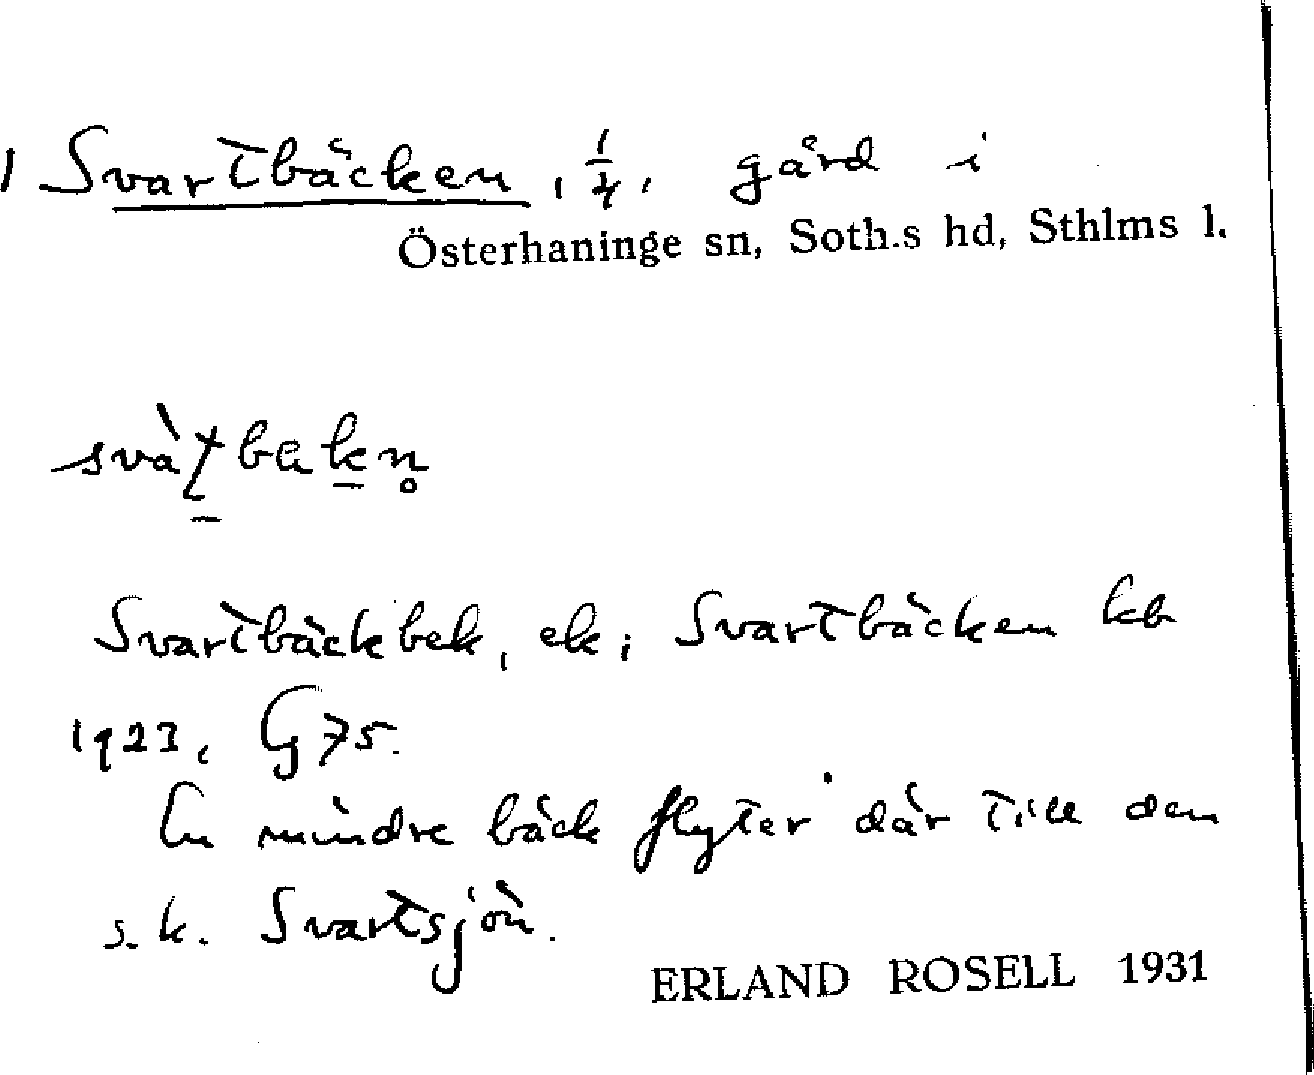 1 Svartbäcken, 1/4, gård i
Österhaninge sn, Soth.s hd, Sthlms l.
svàʈbäkn̥
Svartbäck bek, ek; Svartbäcken kb
1923, G 75.
En mindre bäck flyter där till den
s.k. Svartsjön.
ERLAND ROSELL 1931